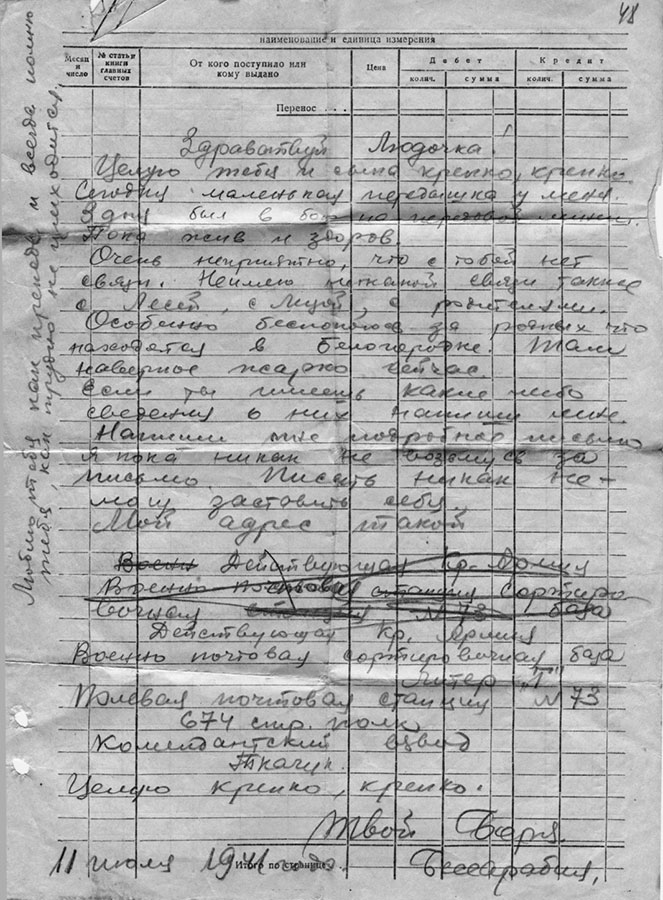 48
наименование и единица измерения
Месяц и число
№ статьи книги главных счетов
От кого поступило или кому выдано
Цена
Дебет
Кредит
колич.
сумма
колич.
сумма
Перенос . . .
Здравствуй Людочка!
Целую тебя и сына крепко, крепко.
Сегодня маленькая передышка у меня.
был в на передовой линии.
Пока жив и здоров.
Очень неприятно, что с тобой нет
связи. Неимею никакой связи также
с Лесей, с Лизой, с родителями.
Особенно беспокоюсь за родных что
находятся в Белогородке. Там
наверное жарко сейчас.
Если ты имеешь какие либо
сведения о них напиши мне.
Напиши мне подробное письмо
я пока никак не возьмусь за
письмо. Писать никак не-
могу заставить себя.
Мой адрес такой
Воен Действующая Кр. Армия
Военно почтовая станция сортиро
вочная станция N 73 база
Действующая Кр. Армия
Военно почтовая сортировочная база
Литер "Г"
Полевая почтовая станция N 73
674 стр. полк
Комендантский взвод
Ткачук.
Целую крепко, крепко.
Твой
11 июля 1941 года
Итого по странице . . .
Бессарабия.
Люблю тебя как прежде и всегда помню
тебя как трудно не приходится.